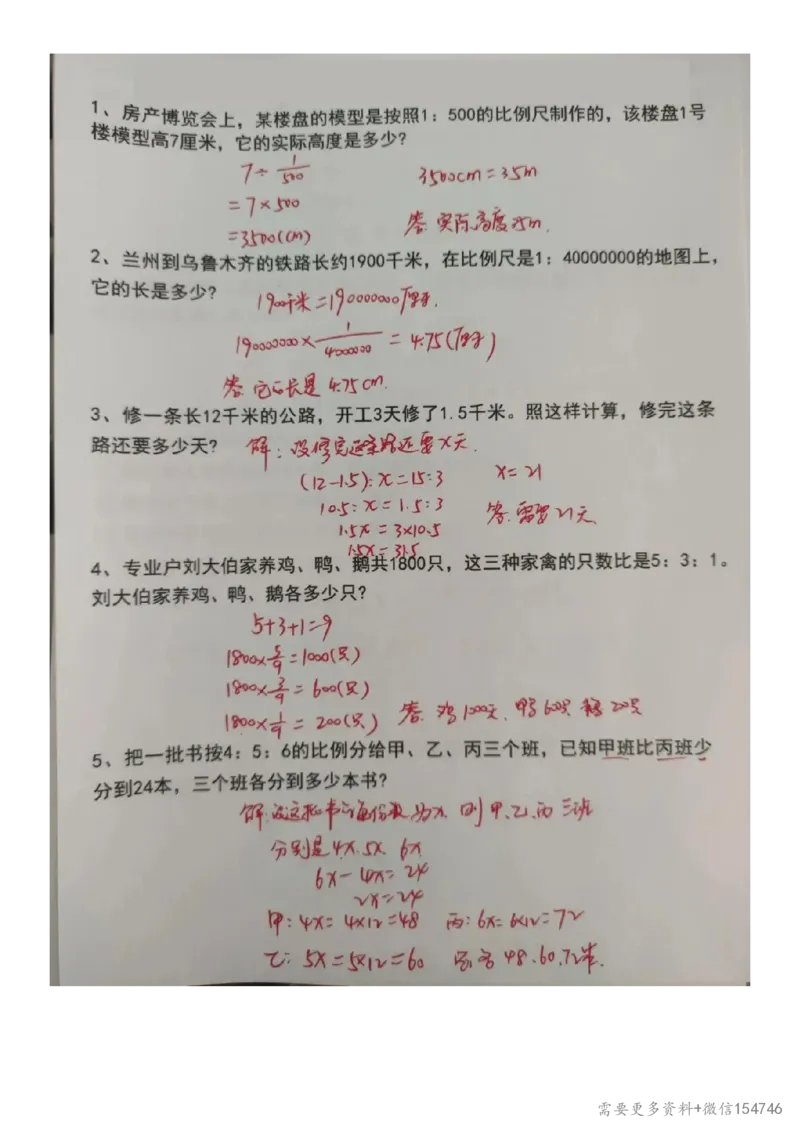 1、房产博览会上，某楼盘的模型是按照1：500的比例尺制作的，该楼盘1号
楼模型高7厘米，它的实际高度是多少?
7÷1/500
3500cm=35m
=7×500
=3500(cm)
答.实际高度35m.
2、兰州到乌鲁木齐的铁路长约1900千米，在比例尺是1：40000000的地图上，
它的长是多少?
1900千米=190000000厘米.
190000000×1/40000000=4.75(厘米)
答.它的长是4.75cm.
3、修一条长12千米的公路，开工3天修了1.5千米。照这样计算，修完这条
路还要多少天?
解：设修完这条路还要x天.
(12-1.5):x=1.5:3
x=21
10.5:x=1.5:3
答.需要21天
1.5x=3×10.5
1.5x=31.5
4、专业户刘大伯家养鸡、鸭、鹅共1800只，这三种家禽的只数比是5：3：1。
刘大伯家养鸡、鸭、鹅各多少只?
5+3+1=9
1800×5/9=1000(只)
1800×3/9=600(只)
1800×1/9=200(只)
答.鸡1000只.鸭600只 鹅200只
5、把一批书按4：5：6的比例分给甲、乙、丙三个班，已知甲班比丙班少
分到24本，三个班各分到多少本书?
解:设这批书的每份数为x.则甲、乙、丙三班
分别是4x.5x.6x
6x-4x=24
2x=24
甲:4x=4×12=48
丙:6x=6×12=72
乙:5x=5×12=60
48.60.72本.
需要更多资料+微信154746